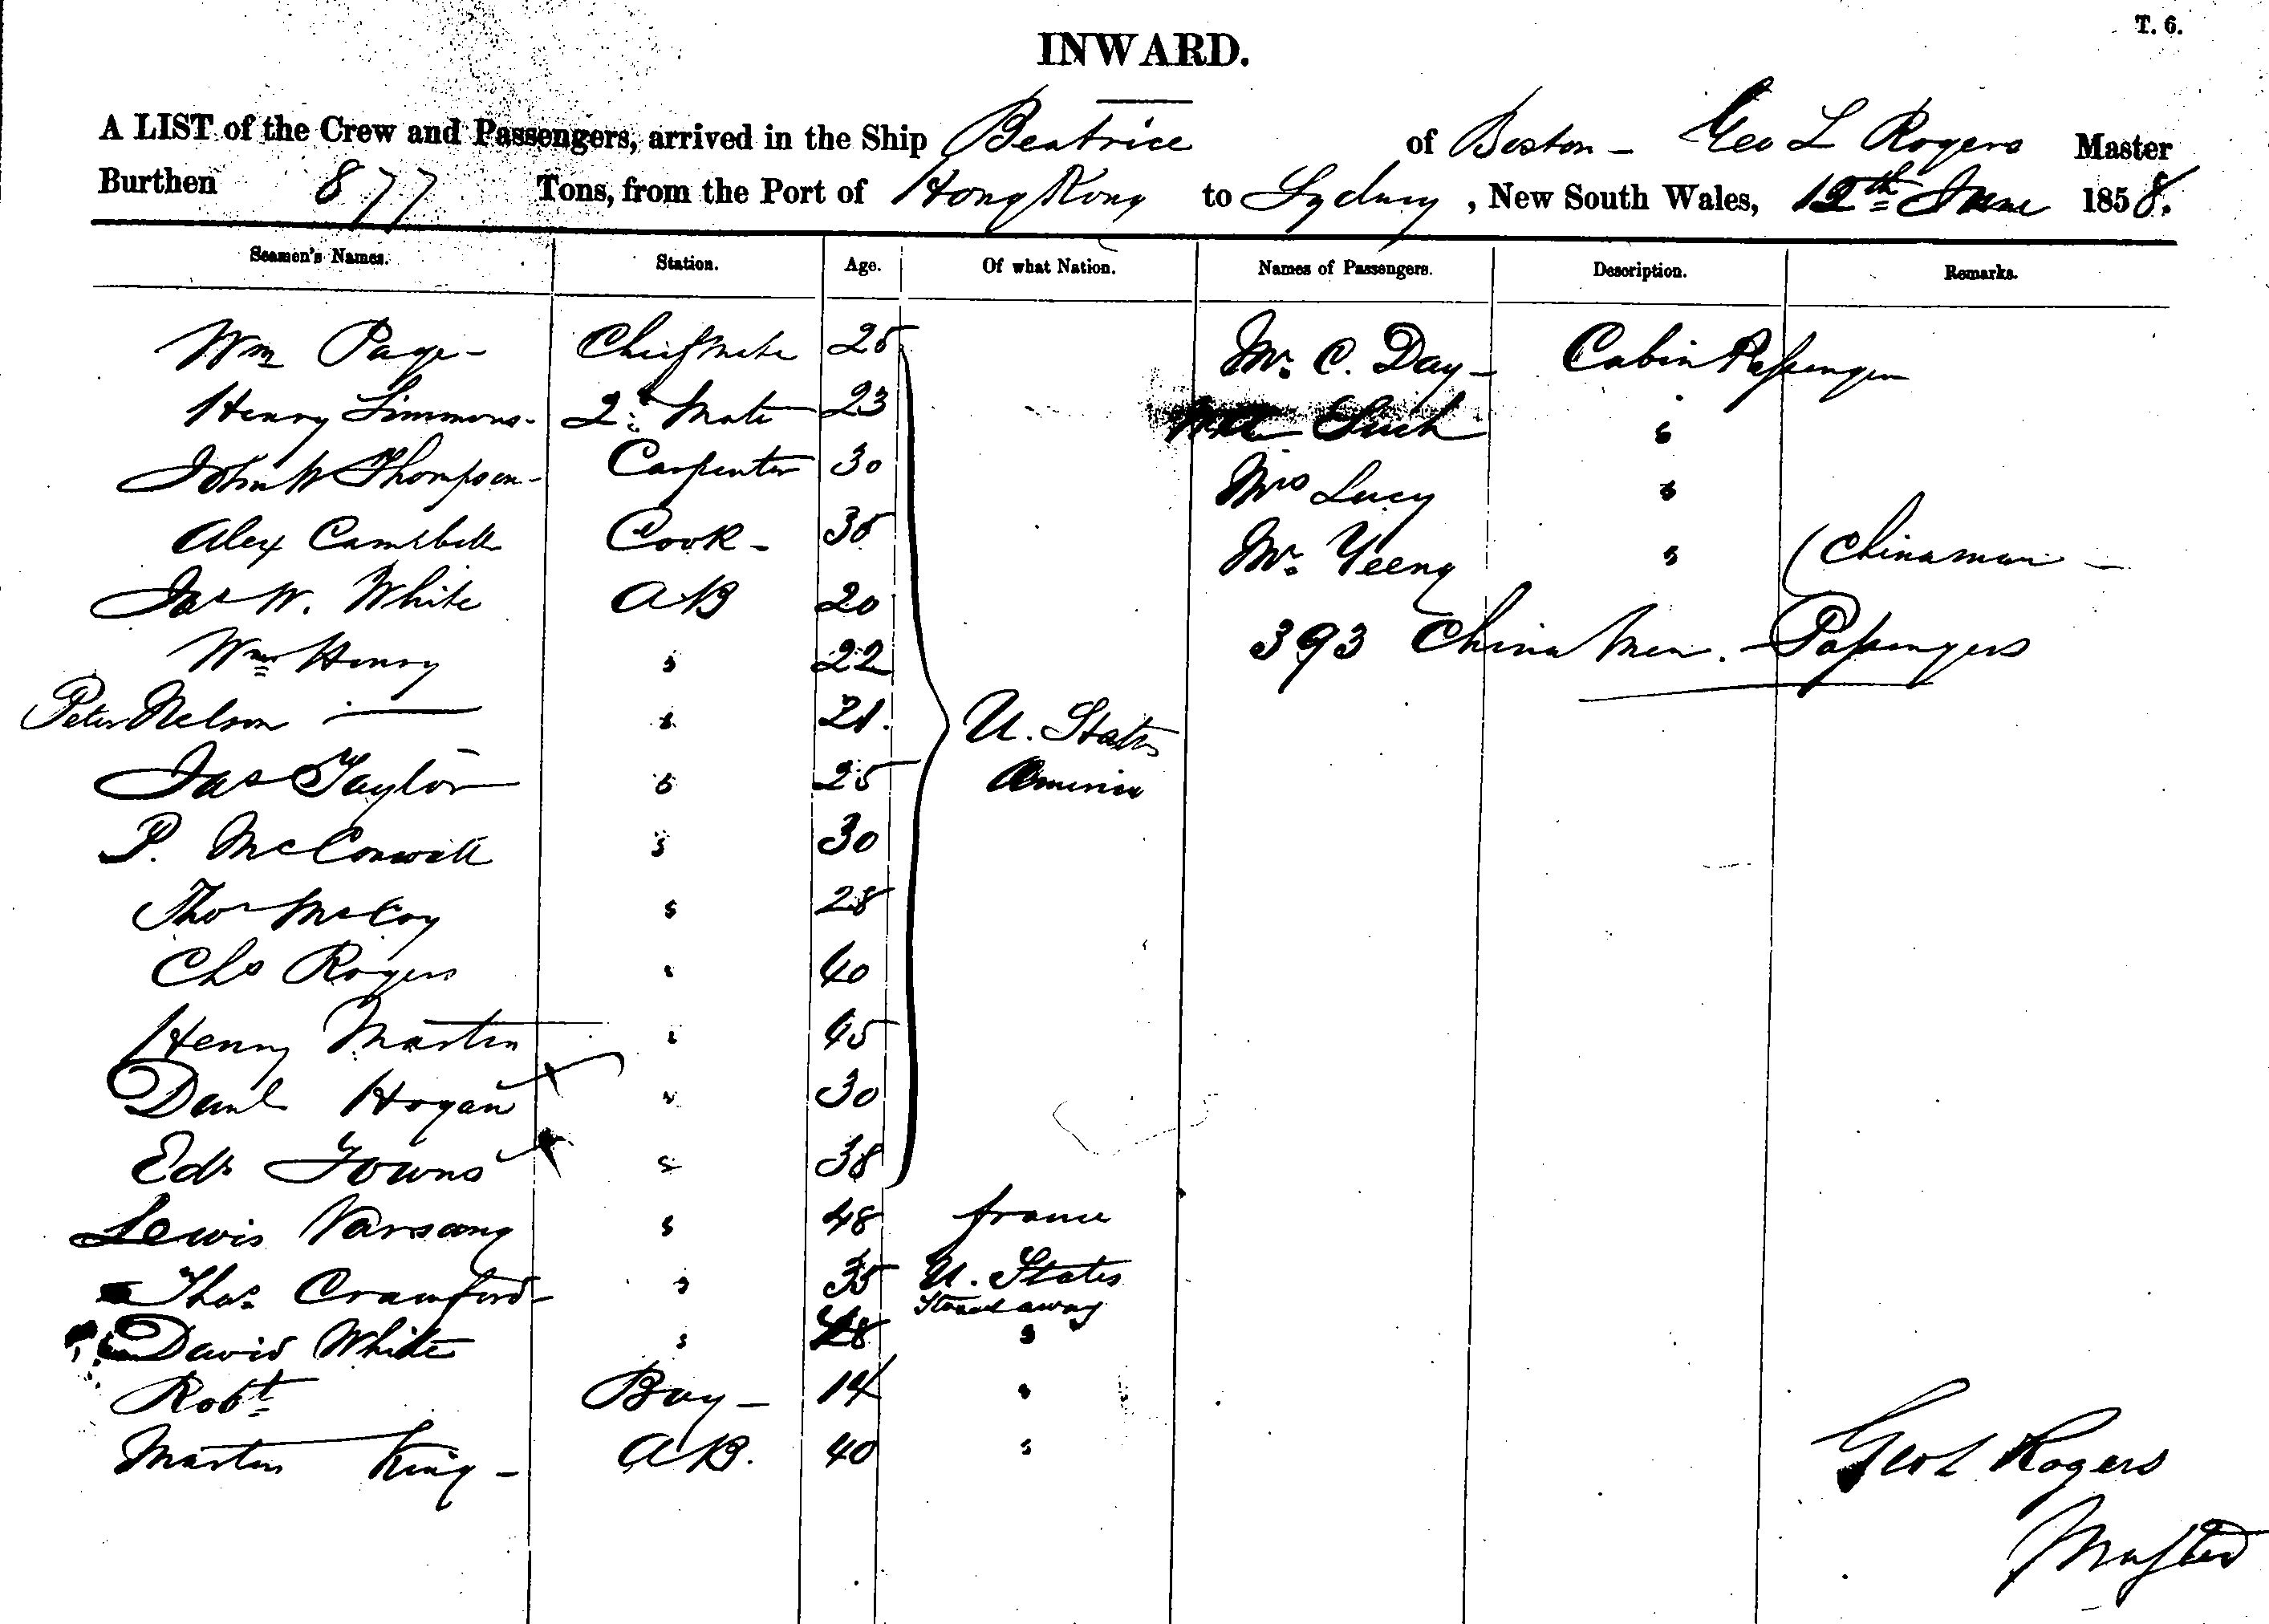 T. 6.
INWARD.
A LIST of the Crew and Passengers, arrived in the Ship Beatrice of Boston - Geo L Rogers Master
Burthen 877 Tons, from the Port of Hong Kong to Sydney, New South Wales, 12th June 1858.
Seamen's Names. Station. Age. Of what Nation. Names of Passengers. Description. Remarks.
Wm Page - Chief Mate 25 Mr. C. Day - Cabin Passenger
Henry Simmons - 2d Mate 23 Such "
John W Thompson - Carpenter 30 Mrs Lucy "
Alex Campbell Cook - 35 Mr. Yeeng " (Chinaman -
Jas W. White AB 20
Wm Henry " 22 393 China Men. - Passengers
Peter Nelson " 21. U. States
Jas Taylor " 25 America
P. McConwell " 30
Thos McCoy " 28
Chs Rogers " 40
Henry Martin " 45
Danl Hogan " 30
Ed Towns " 38
Lewis Varsang " 48 france
Thos Crawford - " 35 U. States
Stowed away
David White " 28 "
Robt Boy - 14 "
Martin King - AB. 40 "
Geo L Rogers
Master